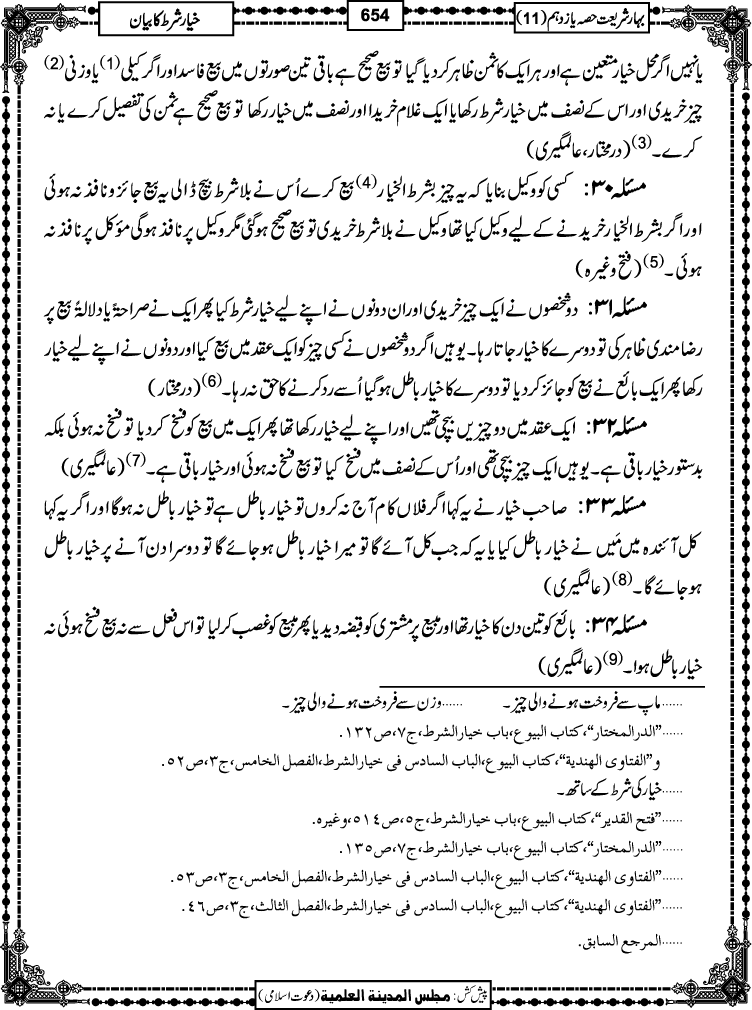 بہار شریعت حصہ یازدہم (11)
654
خیار شرط کا بیان
یا نہیں اگر محل خیار متعین ہے اور ہر ایک کا ثمن ظاہر کر دیا گیا تو بیع صحیح ہے باقی تین صورتوں میں بیع فاسد اور اگر کیلی (1) یا وزنی (2)
چیز خریدی اور اس کے نصف میں خیار شرط رکھا یا ایک غلام خریدا اور نصف میں خیار رکھا تو بیع صحیح ہے ثمن کی تفصیل کرے یا نہ
کرے۔(3) (درمختار، عالمگیری)
مسئلہ ۳۰: کسی کو وکیل بنایا کہ یہ چیز بشرط الخیار (4) بیع کرے اُس نے بلا شرط بیچ ڈالی یہ بیع جائز و نافذ نہ ہوئی
اور اگر بشرط الخیار خریدنے کے لیے وکیل کیا تھا وکیل نے بلا شرط خریدی تو بیع صحیح ہوگئی مگر وکیل پر نافذ ہوگی مؤکل پر نافذ نہ
ہوئی۔(5) (فتح وغیرہ)
مسئلہ ۳۱: دو شخصوں نے ایک چیز خریدی اور ان دونوں نے اپنے لیے خیار شرط کیا پھر ایک نے صراحۃً یا دلالۃً بیع پر
رضا مندی ظاہر کی تو دوسرے کا خیار جاتا رہا۔ یوہیں اگر دو شخصوں نے کسی چیز کو ایک عقد میں بیع کیا اور دونوں نے اپنے لیے خیار
رکھا پھر ایک بائع نے بیع کو جائز کر دیا تو دوسرے کا خیار باطل ہوگیا اُسے رد کرنے کا حق نہ رہا۔(6) (درمختار)
مسئلہ ۳۲: ایک عقد میں دو چیزیں بیچی تھیں اور اپنے لیے خیار رکھا تھا پھر ایک میں بیع کو فسخ کر دیا تو فسخ نہ ہوئی بلکہ
بدستور خیار باقی ہے۔ یوہیں ایک چیز بیچی تھی اور اُس کے نصف میں فسخ کیا تو بیع فسخ نہ ہوئی اور خیار باقی ہے۔(7) (عالمگیری)
مسئلہ ۳۳: صاحب خیار نے یہ کہا اگر فلاں کام آج نہ کروں تو خیار باطل ہے تو خیار باطل نہ ہوگا اور اگر یہ کہا
کل آئندہ میں مَیں نے خیار باطل کیا یا یہ کہ جب کل آئے گا تو میرا خیار باطل ہو جائے گا تو دوسرا دن آنے پر خیار باطل
ہو جائے گا۔(8) (عالمگیری)
مسئلہ ۳۴: بائع کو تین دن کا خیار تھا اور مبیع پر مشتری کو قبضہ دیدیا پھر مبیع کو غصب کر لیا تو اس فعل سے نہ بیع فسخ ہوئی نہ
خیار باطل ہوا۔(9) (عالمگیری)
......ماپ سے فروخت ہونے والی چیز۔ ......وزن سے فروخت ہونے والی چیز۔
......"الدرالمختار"،کتاب البیوع،باب خیارالشرط،ج۷،ص۱۳۲.
و"الفتاوی الهندیة"،کتاب البیوع،الباب السادس فی خیارالشرط،الفصل الخامس،ج۳،ص۵۲.
......خیار کی شرط کے ساتھ۔
......"فتح القدیر"،کتاب البیوع،باب خیارالشرط،ج۵،ص۵۱٤،وغیرہ.
......"الدرالمختار"،کتاب البیوع،باب خیارالشرط،ج۷،ص۱۳۵.
......"الفتاوی الهندیة"،کتاب البیوع،الباب السادس فی خیارالشرط،الفصل الخامس،ج۳،ص۵۳.
......"الفتاوی الهندیة"،کتاب البیوع،الباب السادس فی خیارالشرط،الفصل الثالث،ج۳،ص٤٦.
......المرجع السابق.
پیش کش: مجلس المدینة العلمیة (دعوت اسلامی)